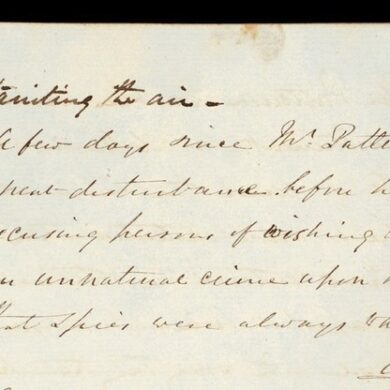 tainting the air –
A few days since Mr Patte
great disturbance before h
accusing persons of wishing
an unnatural crime upon
that Spies were always